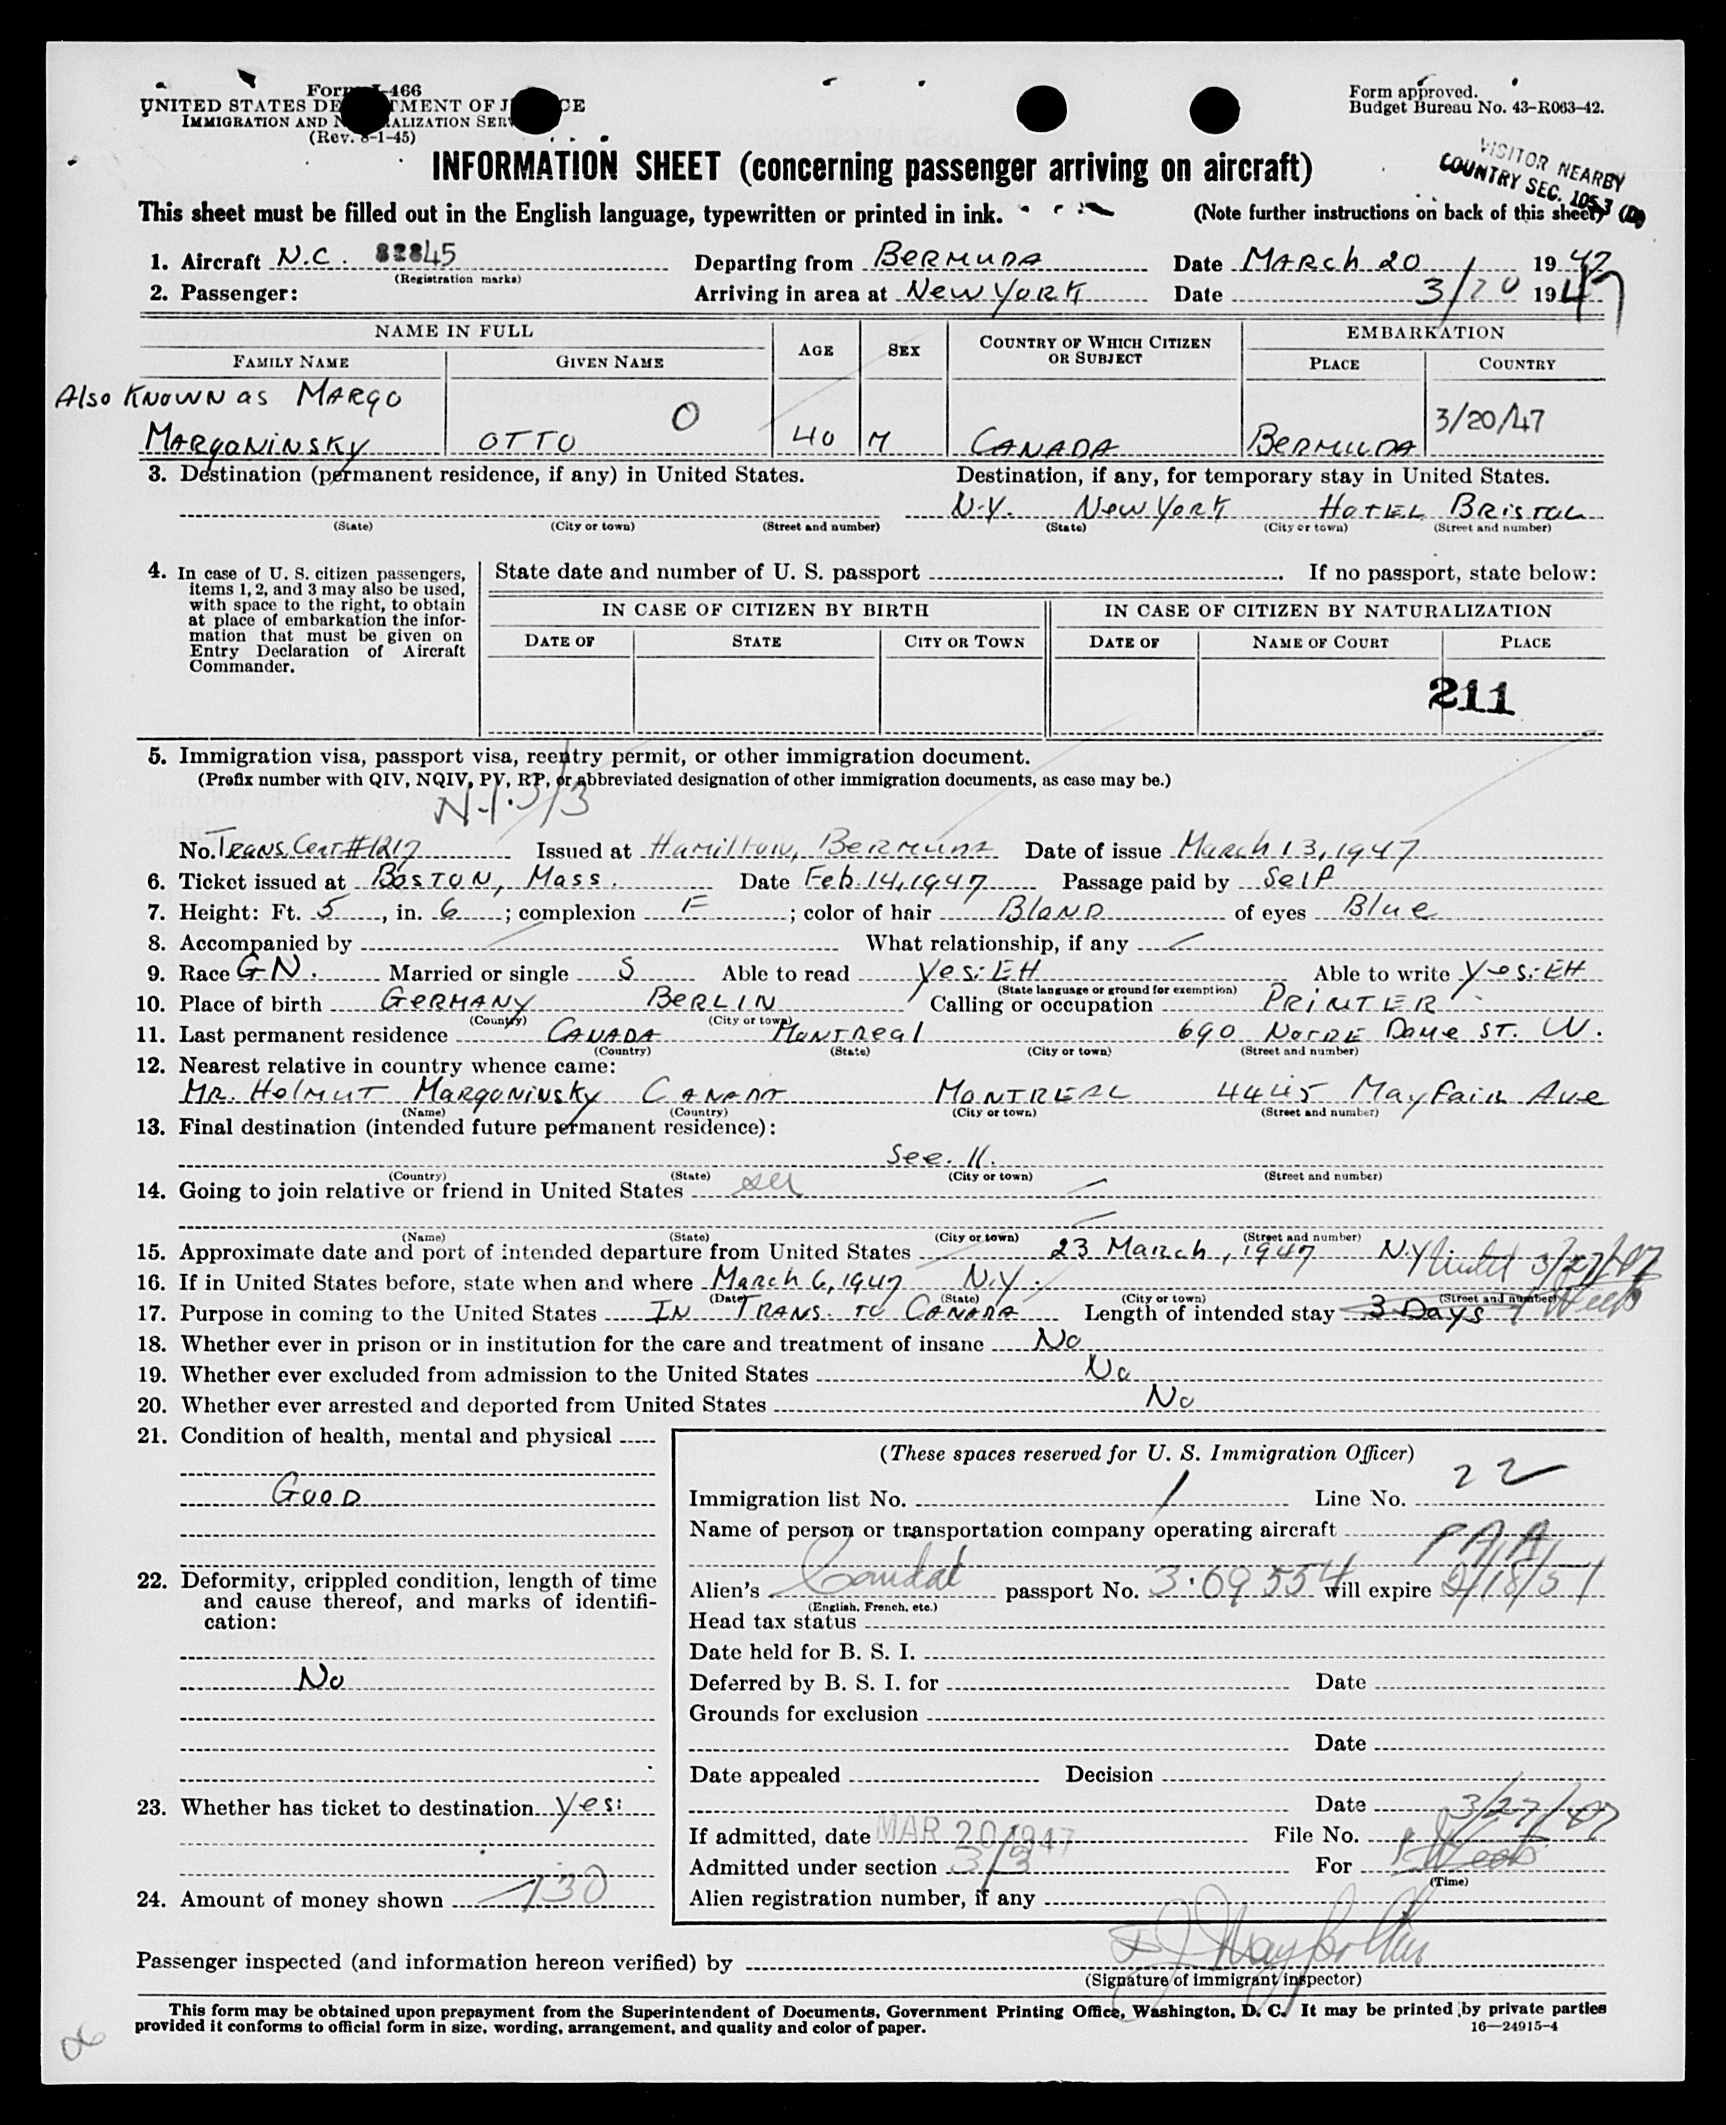 Form I-466
UNITED STATES DEPARTMENT OF JUSTICE
IMMIGRATION AND NATURALIZATION SERVICE
(Rev. 8-1-45)
Form approved.
Budget Bureau No. 43-R063-42.
VISITOR NEARBY
COUNTRY SEC. 105.3 (D)
INFORMATION SHEET (concerning passenger arriving on aircraft)
This sheet must be filled out in the English language, typewritten or printed in ink. (Note further instructions on back of this sheet)
1. Aircraft N.C. 82845 Departing from BERMUDA Date MARCH 20 1947
(Registration marks)
2. Passenger: Arriving in area at NEW YORK Date 3/20 1947
NAME IN FULL AGE SEX COUNTRY OF WHICH CITIZEN OR SUBJECT EMBARKATION
FAMILY NAME GIVEN NAME PLACE COUNTRY
Also KNOWN as MARGO
O 3/20/47
MARGONINSKY OTTO 40 M CANADA BERMUDA
3. Destination (permanent residence, if any) in United States. Destination, if any, for temporary stay in United States.
N.Y. New York HOTEL BRISTOL
(State) (City or town) (Street and number) (State) (City or town) (Street and number)
4. In case of U. S. citizen passengers, items 1, 2, and 3 may also be used, with space to the right, to obtain at place of embarkation the information that must be given on Entry Declaration of Aircraft Commander.
State date and number of U. S. passport If no passport, state below:
IN CASE OF CITIZEN BY BIRTH IN CASE OF CITIZEN BY NATURALIZATION
DATE OF STATE CITY OR TOWN DATE OF NAME OF COURT PLACE
211
5. Immigration visa, passport visa, reentry permit, or other immigration document.
(Prefix number with QIV, NQIV, PV, RP, or abbreviated designation of other immigration documents, as case may be.)
N-I. 3/3
No. TRANS. Cert #1217 Issued at Hamilton, Bermuda Date of issue March 13, 1947
6. Ticket issued at BOSTON, Mass. Date Feb. 14, 1947 Passage paid by Self
7. Height: Ft. 5, in. 6; complexion F; color of hair BLOND of eyes Blue
8. Accompanied by What relationship, if any
9. Race GN. Married or single S Able to read Yes: EH Able to write Yes: EH
(State language or ground for exemption)
10. Place of birth GERMANY BERLIN Calling or occupation PRINTER
(Country) (City or town)
11. Last permanent residence CANADA MONTREAL 690 NOTRE Dame ST. W.
(Country) (State) (City or town) (Street and number)
12. Nearest relative in country whence came:
MR. Helmut Margoninsky CANADA MONTREAL 4445 Mayfair Ave
(Name) (Country) (City or town) (Street and number)
13. Final destination (intended future permanent residence):
See. 11.
(Country) (State) (City or town) (Street and number)
14. Going to join relative or friend in United States
(Name) (State) (City or town) (Street and number)
15. Approximate date and port of intended departure from United States 23 March, 1947 N.Y. 3/27/47
16. If in United States before, state when and where March 6, 1947 N.Y.
(Date) (State) (City or town) (Street and number)
17. Purpose in coming to the United States IN TRANS. TO CANADA Length of intended stay 3 Days 1 Week
18. Whether ever in prison or in institution for the care and treatment of insane No
19. Whether ever excluded from admission to the United States No
20. Whether ever arrested and deported from United States No
21. Condition of health, mental and physical
GOOD
22. Deformity, crippled condition, length of time and cause thereof, and marks of identification:
No
23. Whether has ticket to destination Yes:
24. Amount of money shown 130
(These spaces reserved for U. S. Immigration Officer)
Immigration list No. 1 Line No. 22
Name of person or transportation company operating aircraft
P.A.A.
Alien's passport No. 3-69554 will expire 2/18/51
(English, French, etc.)
Head tax status
Date held for B. S. I.
Deferred by B. S. I. for Date
Grounds for exclusion
Date
Date appealed Decision
Date 3/27/47
If admitted, date MAR 20 1947 File No.
Admitted under section 3/3 For 1 Week
(Time)
Alien registration number, if any
Passenger inspected (and information hereon verified) by
(Signature of immigrant inspector)
This form may be obtained upon prepayment from the Superintendent of Documents, Government Printing Office, Washington, D. C. It may be printed by private parties
provided it conforms to official form in size, wording, arrangement, and quality and color of paper.
16—24915-4